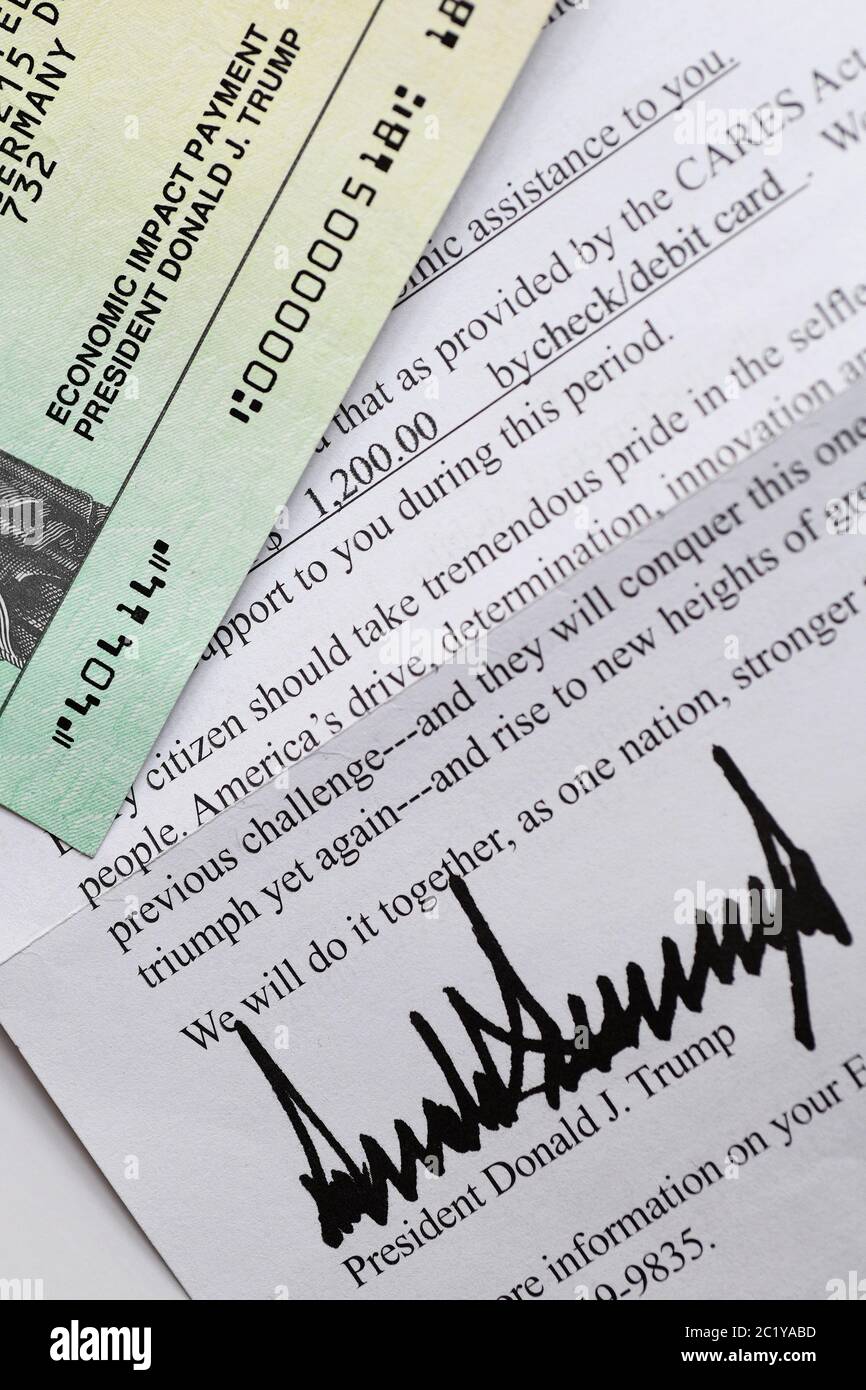 215, D
GERMANY
732
ECONOMIC IMPACT PAYMENT
PRESIDENT DONALD J. TRUMP
⑆000000518⑆
⑈40414⑈
assistance to you.
that as provided by the CARES Act
$ 1,200.00 by check/debit card . We
support to you during this period.
citizen should take tremendous pride in the
people. America's drive, determination, innovation
previous challenge---and they will conquer this one
triumph yet again---and rise to new heights of
We will do it together, as one nation, stronger
Donald Trump
President Donald J. Trump
information on your
9-9835.
alamy
Image ID: 2C1YABD
www.alamy.com